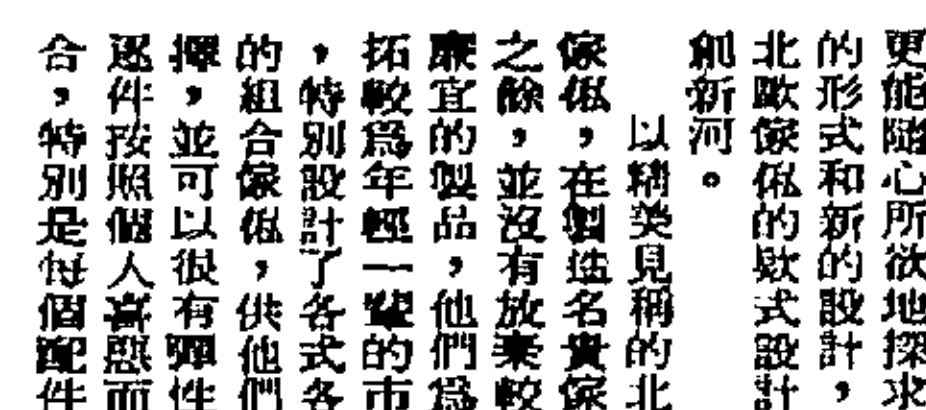 更能隨心所欲地探求
的形式和新的設計，
北歐傢俬的欵式設計
創新河。
以精美見稱的北
傢俬，在製造名貴傢
之餘，並沒有放棄較
廉宜的製品，他們爲
拓較爲年輕一輩的市
，特別設計了各式各
的組合傢俬，供他們
擇，並可以很有彈性
逐件按照個人喜惡而
合，特別是每個配件